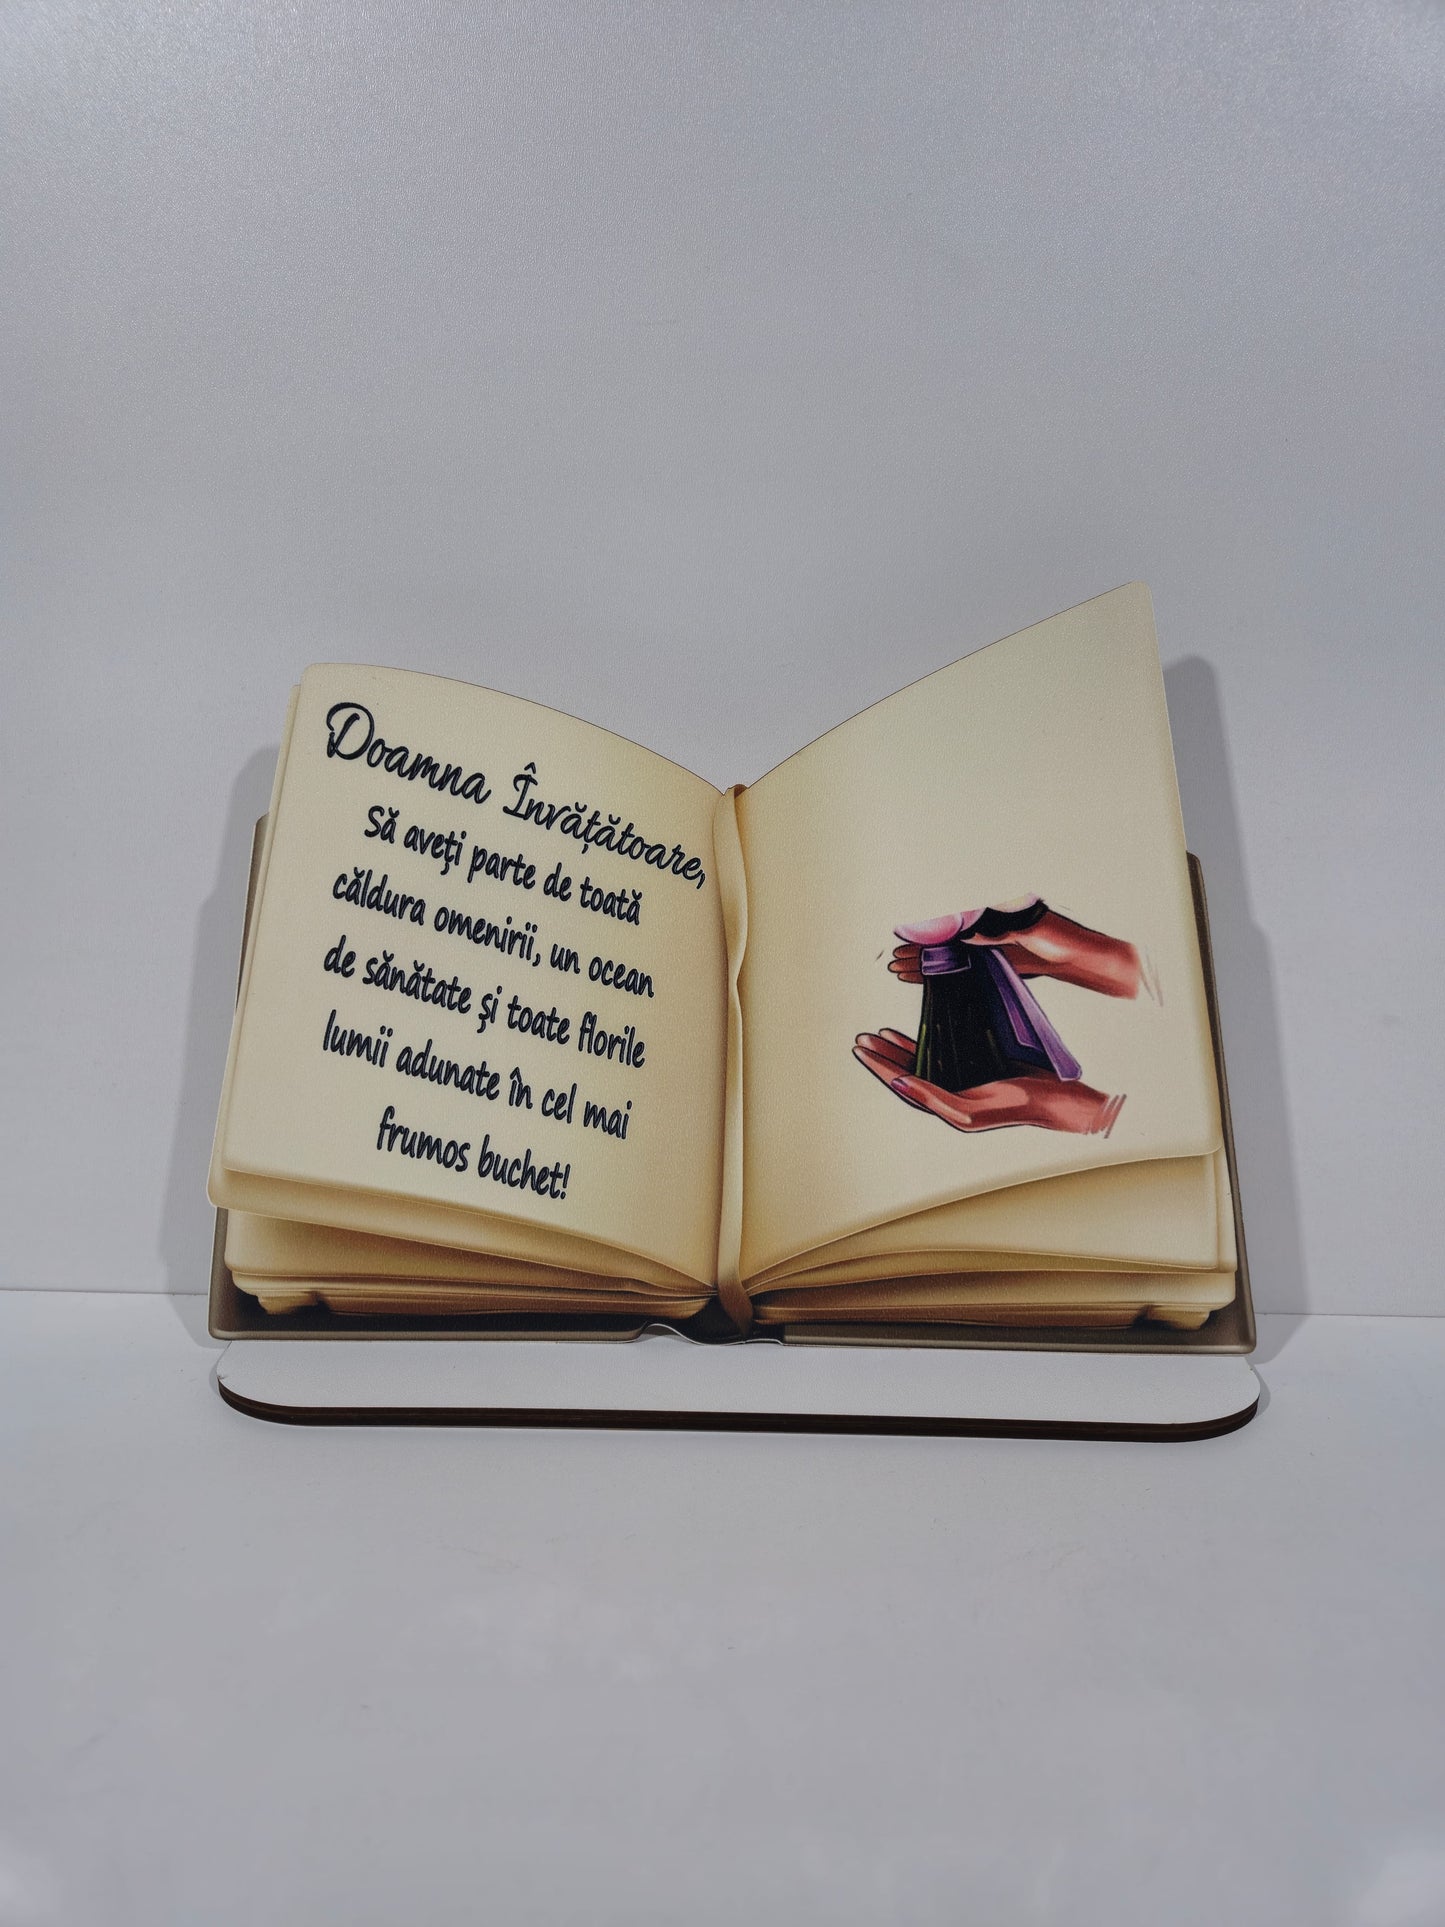 Doamna Învățătoare,
Să aveţi parte de toată
căldura omenirii, un ocean
de sănătate şi toate florile
lumii adunate în cel mai
frumos buchet!